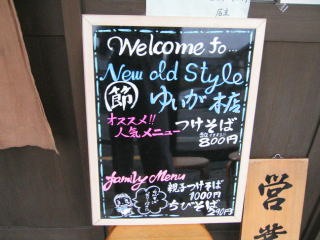 店主
Welcome to...
New old Style
節 ゆいが本店
オススメ!!
人気メニュー
つけそば
800円
family Menu
親子つけそば
1000円
ちびそば
290円
営業